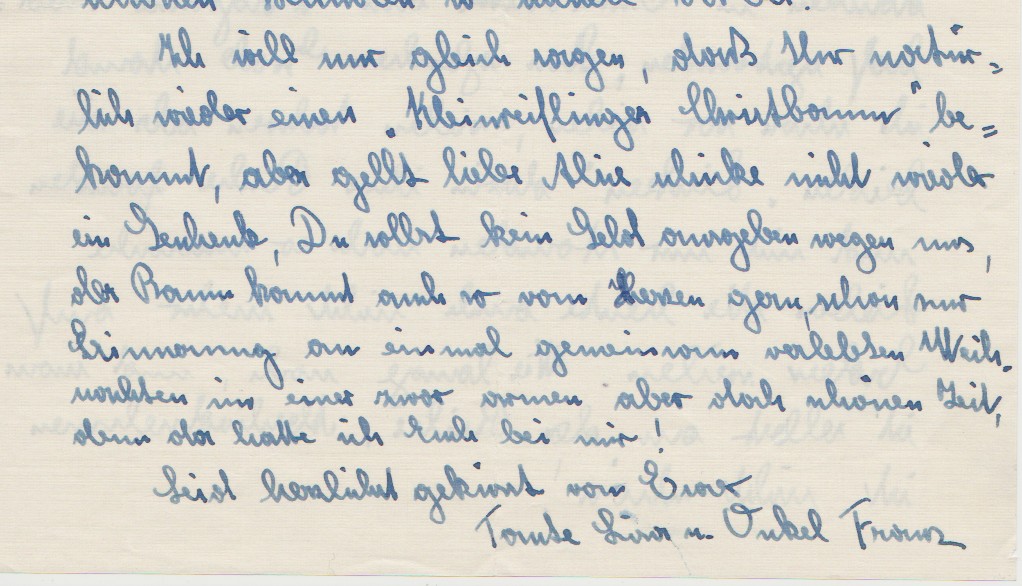 Ich will nur gleich sagen, daß Ihr natür=
lich wieder einen "Kleinreiflinger Christbaum" be=
kommt, aber gellt lieber schicke nicht wieder
ein Geschenk, Du sollst kein Geld ausgeben wegen uns,
der Baum kommt auch so vom Herzen gern, schon zur
Erinnerung an einmal gemeinsam verlebten Weih-
nachten in einer zwar armen aber doch schönen Zeit,
denn da hatte ich Euch bei mir!
Seid herzlichst geküsst von Eurer
Tante u. Onkel Franz